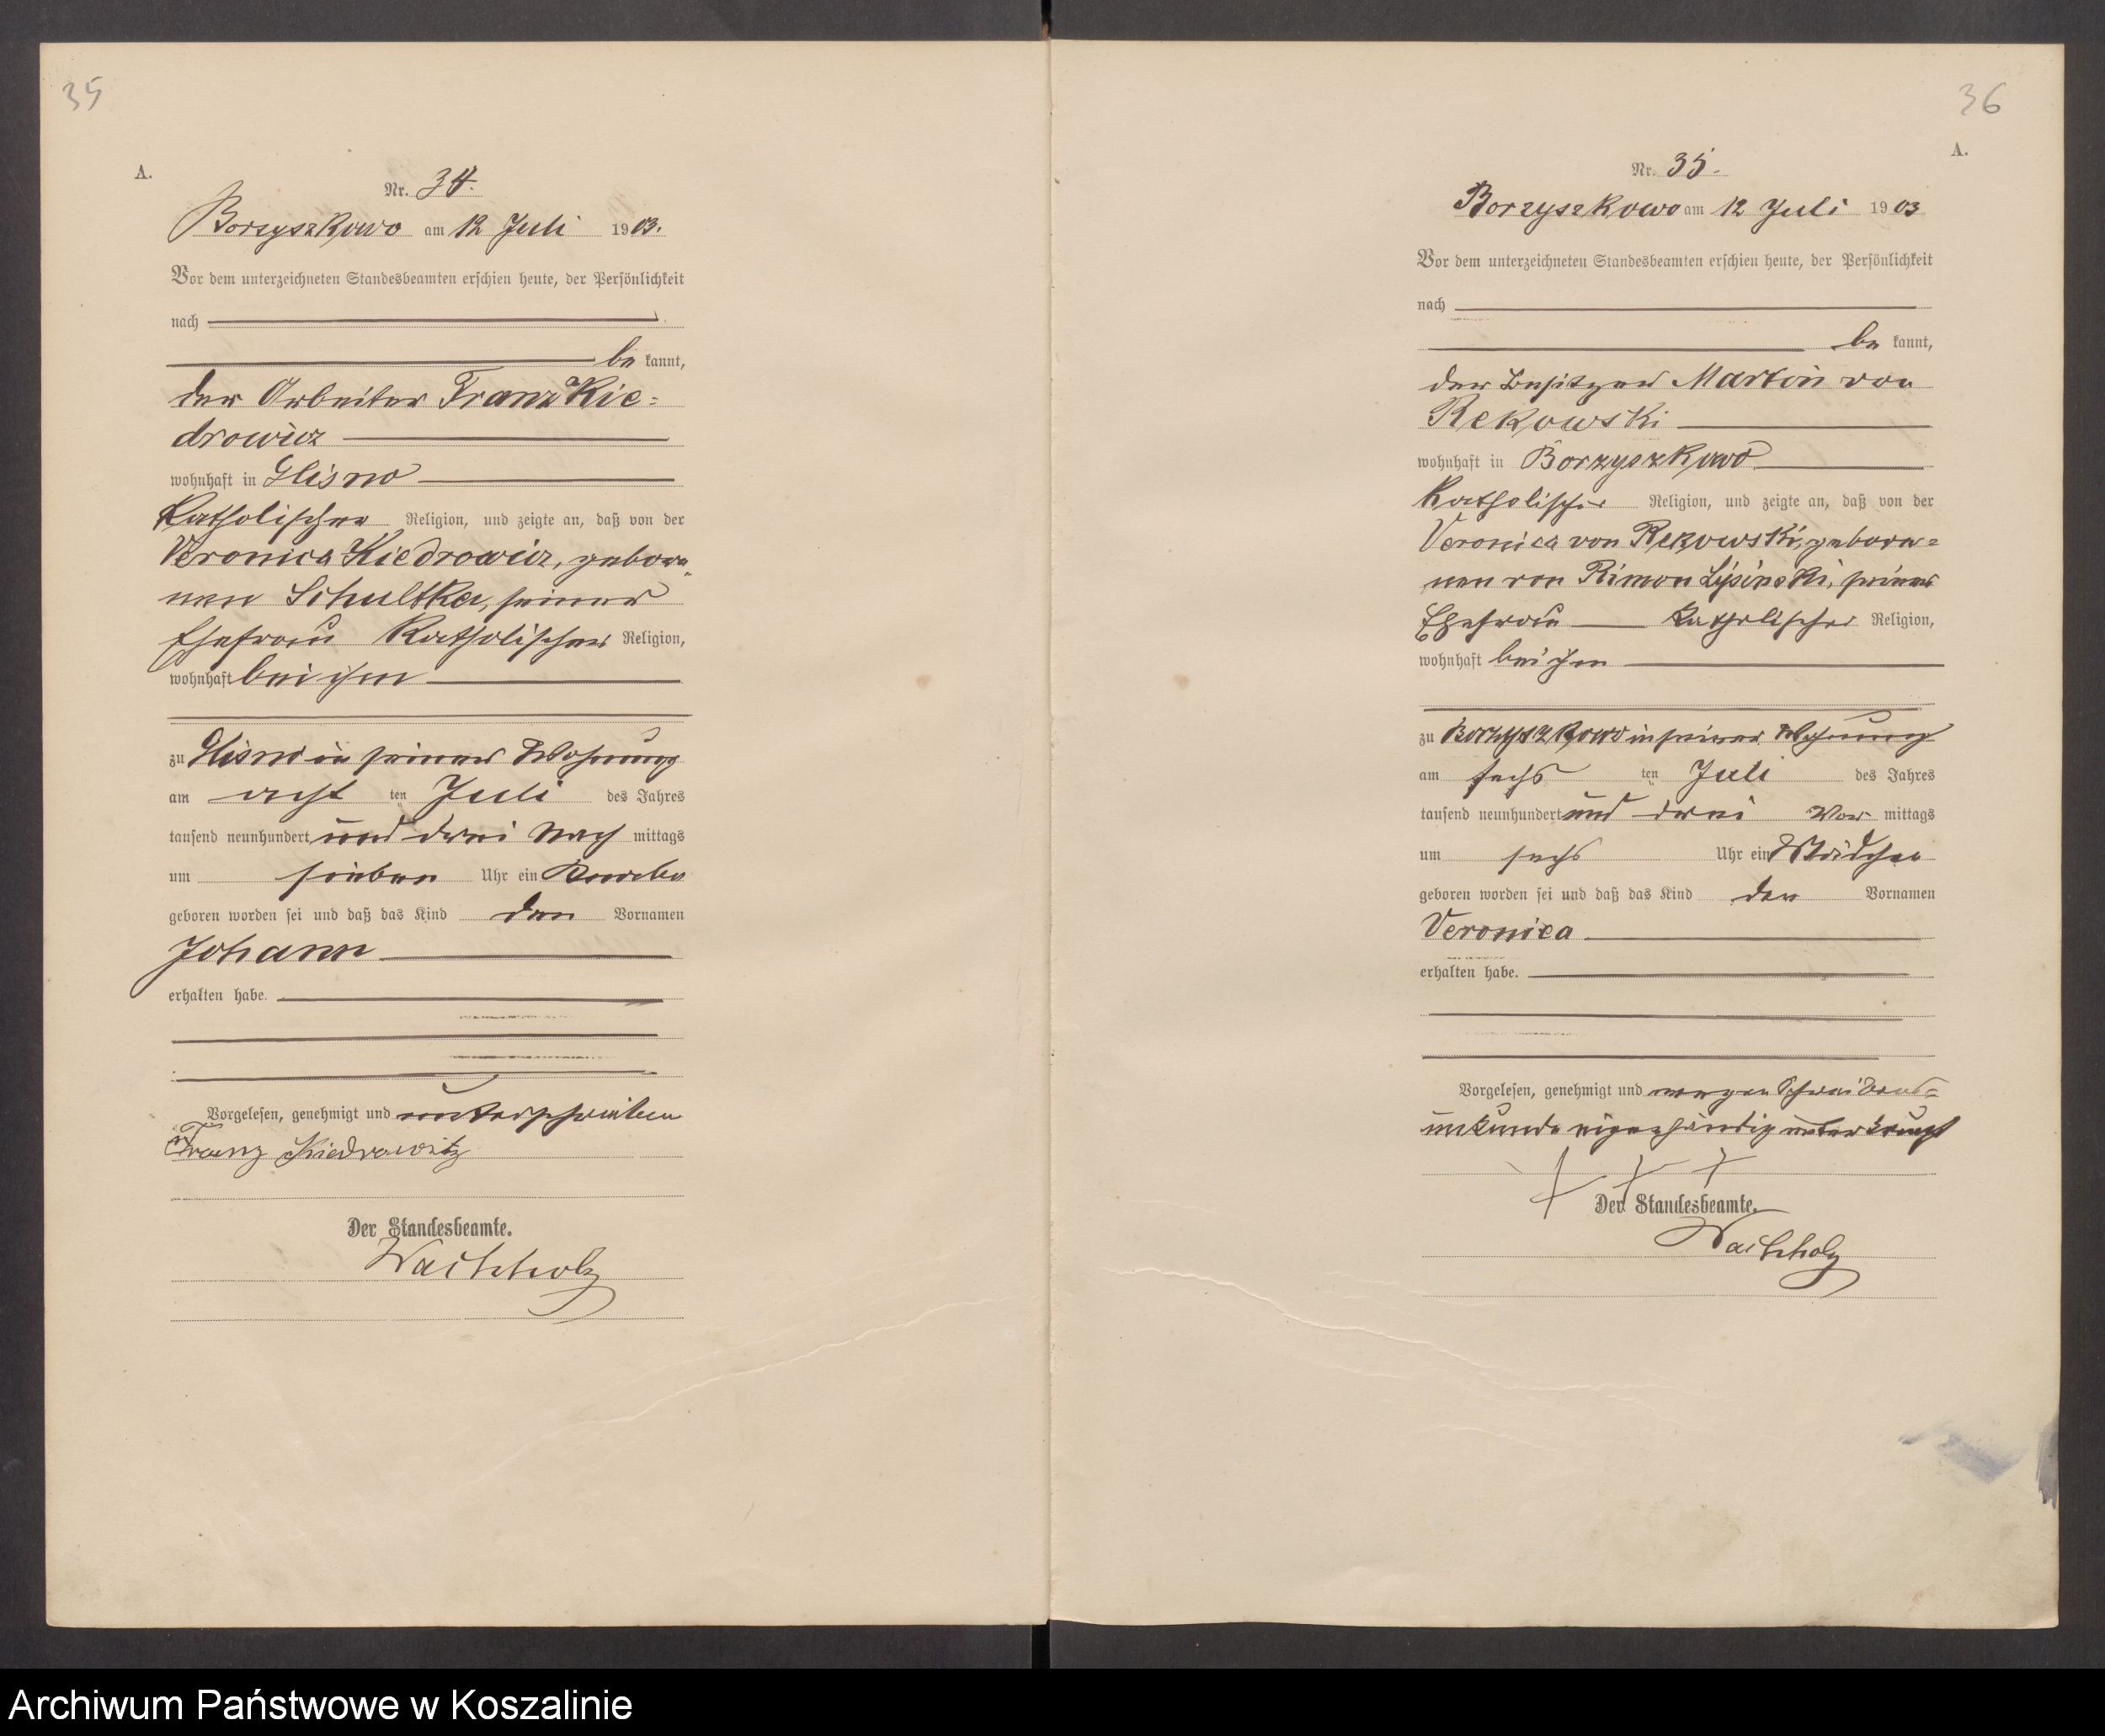 35
A.
Nr. 34.
Borzyszkowo am 12 Juli 1903.
Vor dem unterzeichneten Standesbeamten erschien heute, der Persönlichkeit
nach
be kannt,
der Arbeiter Franz Kie=
drowicz
wohnhaft in Glisno
katholischer Religion, und zeigte an, daß von der
Veronica Kiedrowicz, gebore„
nen Schultka, seiner
Ehefrau katholischer Religion,
wohnhaft bei ihm
zu Glisno in seiner Wohnung
am acht ten Juli des Jahres
tausend neunhundert und drei Nach mittags
um sieben Uhr ein Knabe
geboren worden sei und daß das Kind den Vornamen
Johann
erhalten habe.
Vorgelesen, genehmigt und unterschrieben
Franz Kiedrowitz
Der Standesbeamte.
Wachholz
36
A.
Nr. 35.
Borzyszkowo am 12 Juli 1903
Vor dem unterzeichneten Standesbeamten erschien heute, der Persönlichkeit
nach
be kannt,
der Besitzer Martin von
Rekowski
wohnhaft in Borzyszkowo
katholischer Religion, und zeigte an, daß von der
Veronica von Rekowski, gebore=
nen von Rimon Lipinski, seiner
Ehefrau katholischer Religion,
wohnhaft bei ihm
zu Borzyszkowo in seiner Wohnung
am sechs ten Juli des Jahres
tausend neunhundert und drei Vor mittags
um sechs Uhr ein Mädchen
geboren worden sei und daß das Kind den Vornamen
Veronica
erhalten habe.
Vorgelesen, genehmigt und wegen Schreibens=
unkunde eigenhändig unterkreuzt
+ + +
Der Standesbeamte.
Wachholz
Archiwum Państwowe w Koszalinie